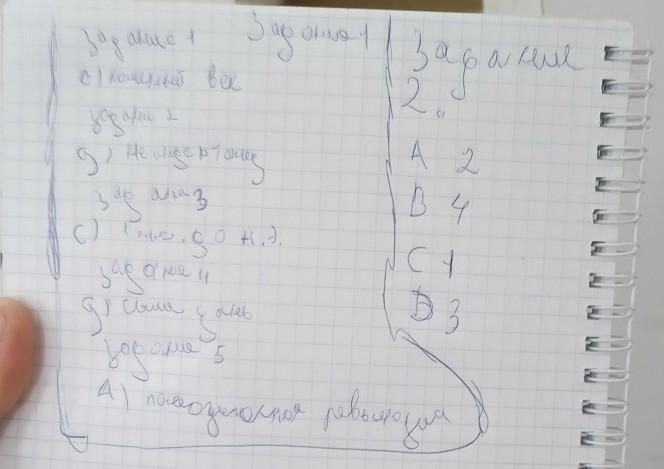 Задание 1
задание 1
с) каменный век
задание 2
д) Неандерталец
задание 3
с) 1 тыс. до н.э.
задание 4
д)
задание 5
А) революция
Задание
2.
А 2
В 4
С 1
D 3